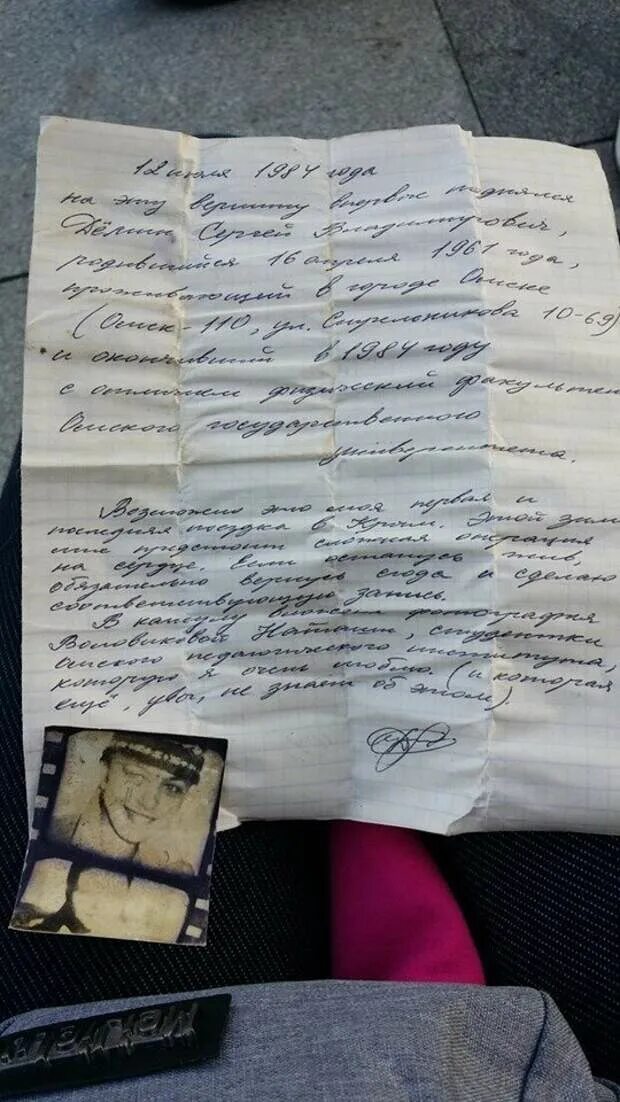 12 июля 1984 года
на эту вершину впервые поднялся
Дёмин Сергей Владимирович,
родившийся 16 апреля 1961 года,
проживающий в городе Омске
(Омск-110, ул. 10-69)
и окончивший в 1984 году
с отличием физический факультет
Омского государственного
университета.
Возможно это моя первая и
последняя поездка в Крым. Этой зимой
мне предстоит сложная операция
на сердце. Если останусь жив,
обязательно вернусь сюда и сделаю
соответствующую запись.
В капсулу вложена фотография
Воловиковой Наташи, студентки
Омского педагогического института,
которую я очень люблю. (и которая
ещё, увы, не знает об этом).